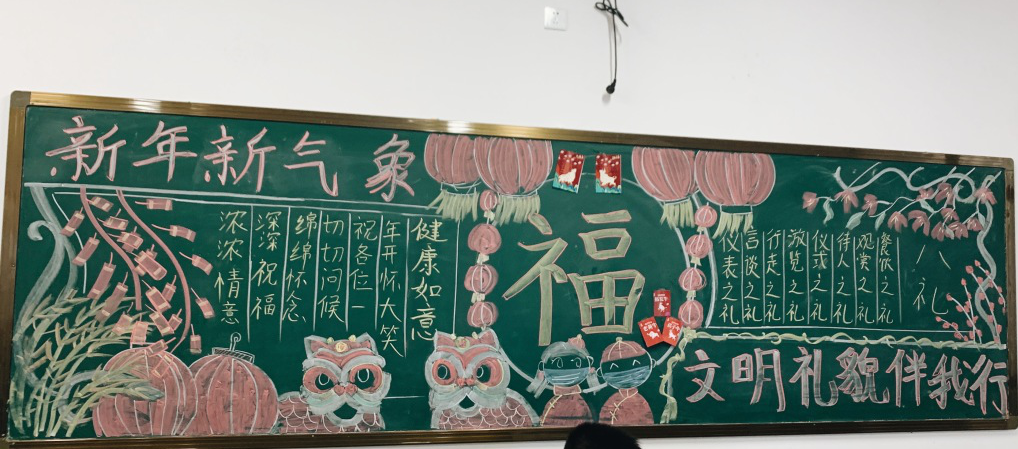 新年新气象
浓浓情意
深深祝福
绵绵怀念
切切问候
祝各位一
年开怀大笑
健康如意
福
八礼
仪表之礼
言谈之礼
行走之礼
游览之礼
仪式之礼
待人之礼
观赏之礼
餐饮之礼
文明礼貌伴我行